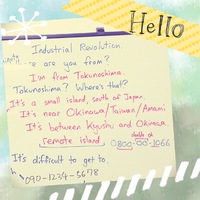 Hello
Industrial Revolution
e are you from?
I'm from Tokunoshima.
Tokunoshima? Where's that?
It's a small island, south of Japan.
It's near Okinawa/Taiwan/Amami
It's between Kyushu and Okinawa
remote island
double oh
0800-00-1066
It's difficult to get to.
090-1234-5678